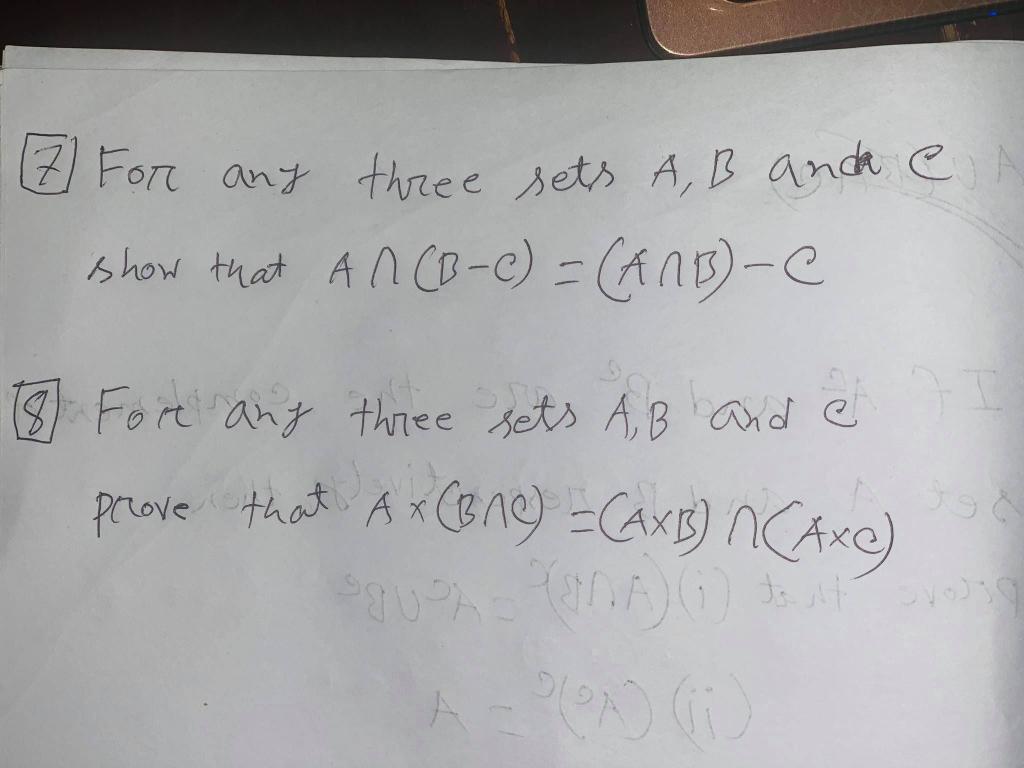 7 For any three sets A, B and C
show that A∩(B-C) = (A∩B)-C
8 For any three sets A,B and C
prove that A×(B∩C) =(A×B)∩(A×C)